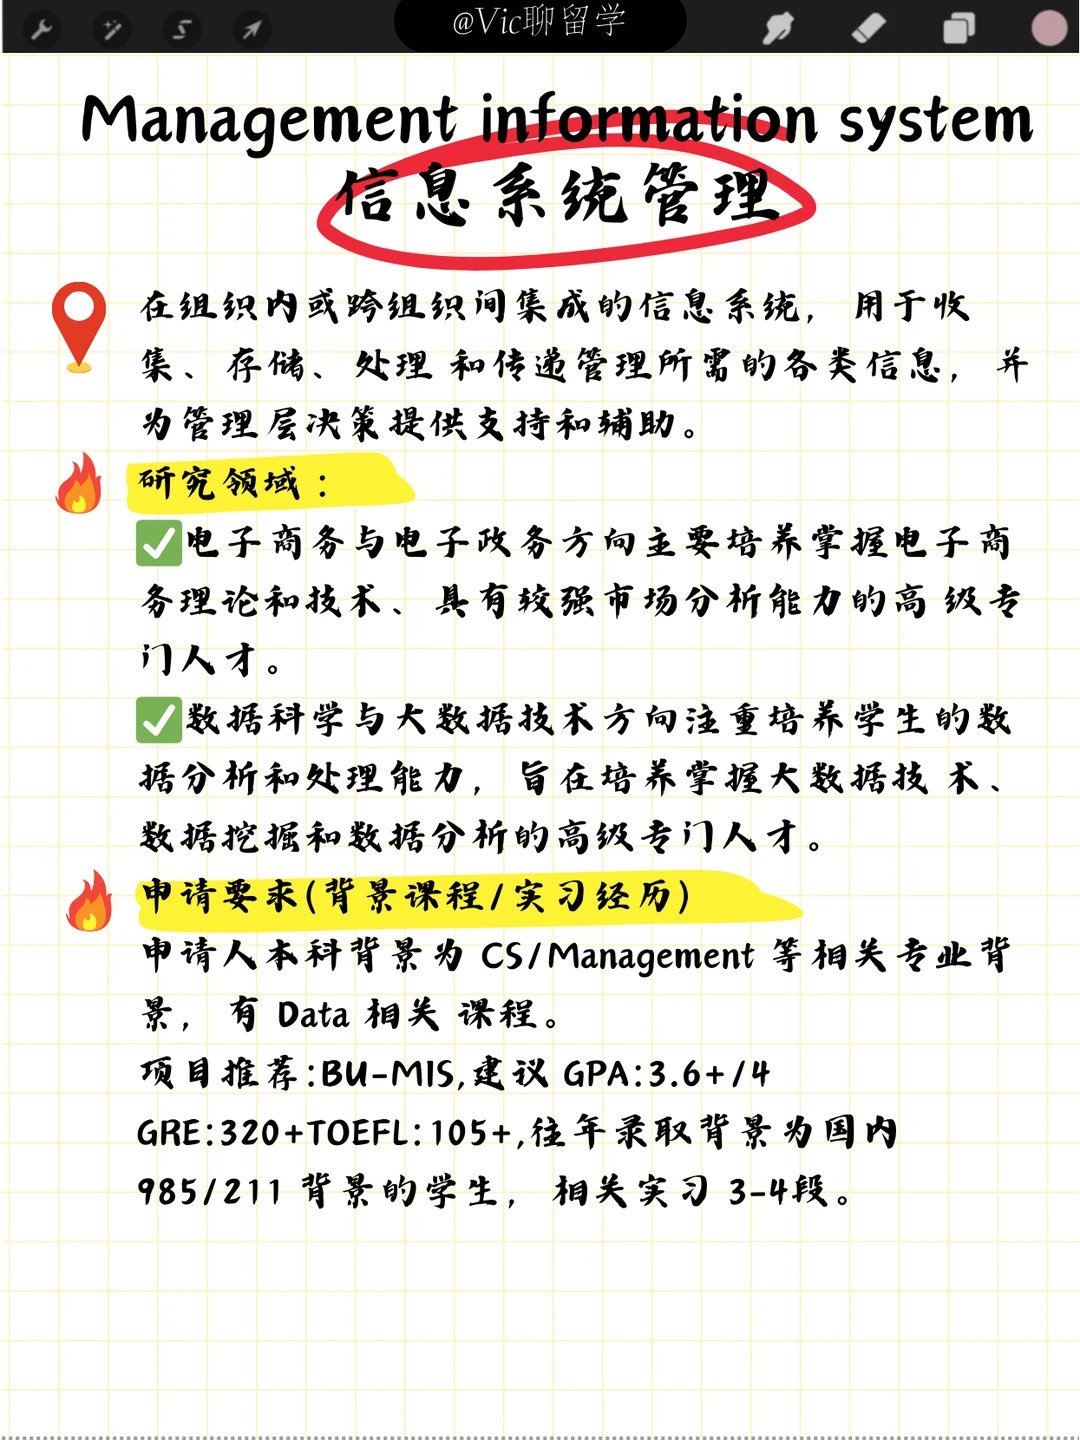 @Vic聊留学
Management information system
信息系统管理
在组织内或跨组织间集成的信息系统， 用于收
集、存储、处理 和传递管理所需的各类信息， 并
为管理层决策提供支持和辅助。
研究领域：
电子商务与电子政务方向主要培养掌握电子商
务理论和技术、具有较强市场分析能力的高 级专
门人才。
数据科学与大数据技术方向注重培养学生的数
据分析和处理能力，旨在培养掌握大数据技 术、
数据挖掘和数据分析的高级专门人才。
申请要求(背景课程/实习经历)
申请人本科背景为 CS/Management 等相关专业背
景， 有 Data 相关 课程。
项目推荐:BU-MIS,建议 GPA:3.6+/4
GRE:320+TOEFL:105+,往年录取背景为国内
985/211 背景的学生， 相关实习 3-4段。